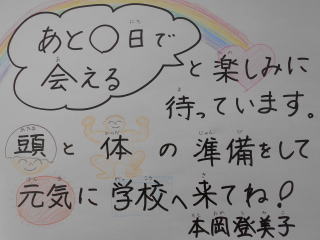 あと〇日で
会える
と楽しみに
待っています。
頭と体の準備をして
元気に学校へ来てね!
本岡登美子